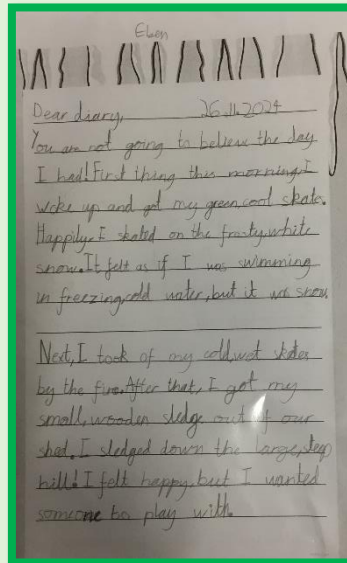 Eben
Dear diary, 26.11.2024
You are not going to believe the day
I had! First thing this morning, I
woke up and got my green, cool skates.
Happily, I skated on the frosty, white
snow. It felt as if I was swimming
in freezing, cold water, but it was snow.
Next, I took of my cold, wet skates
by the fire. After that, I got my
small, wooden sledge out of our
shed. I sledged down the large, steep
hill! I felt happy, but I wanted
someone to play with.